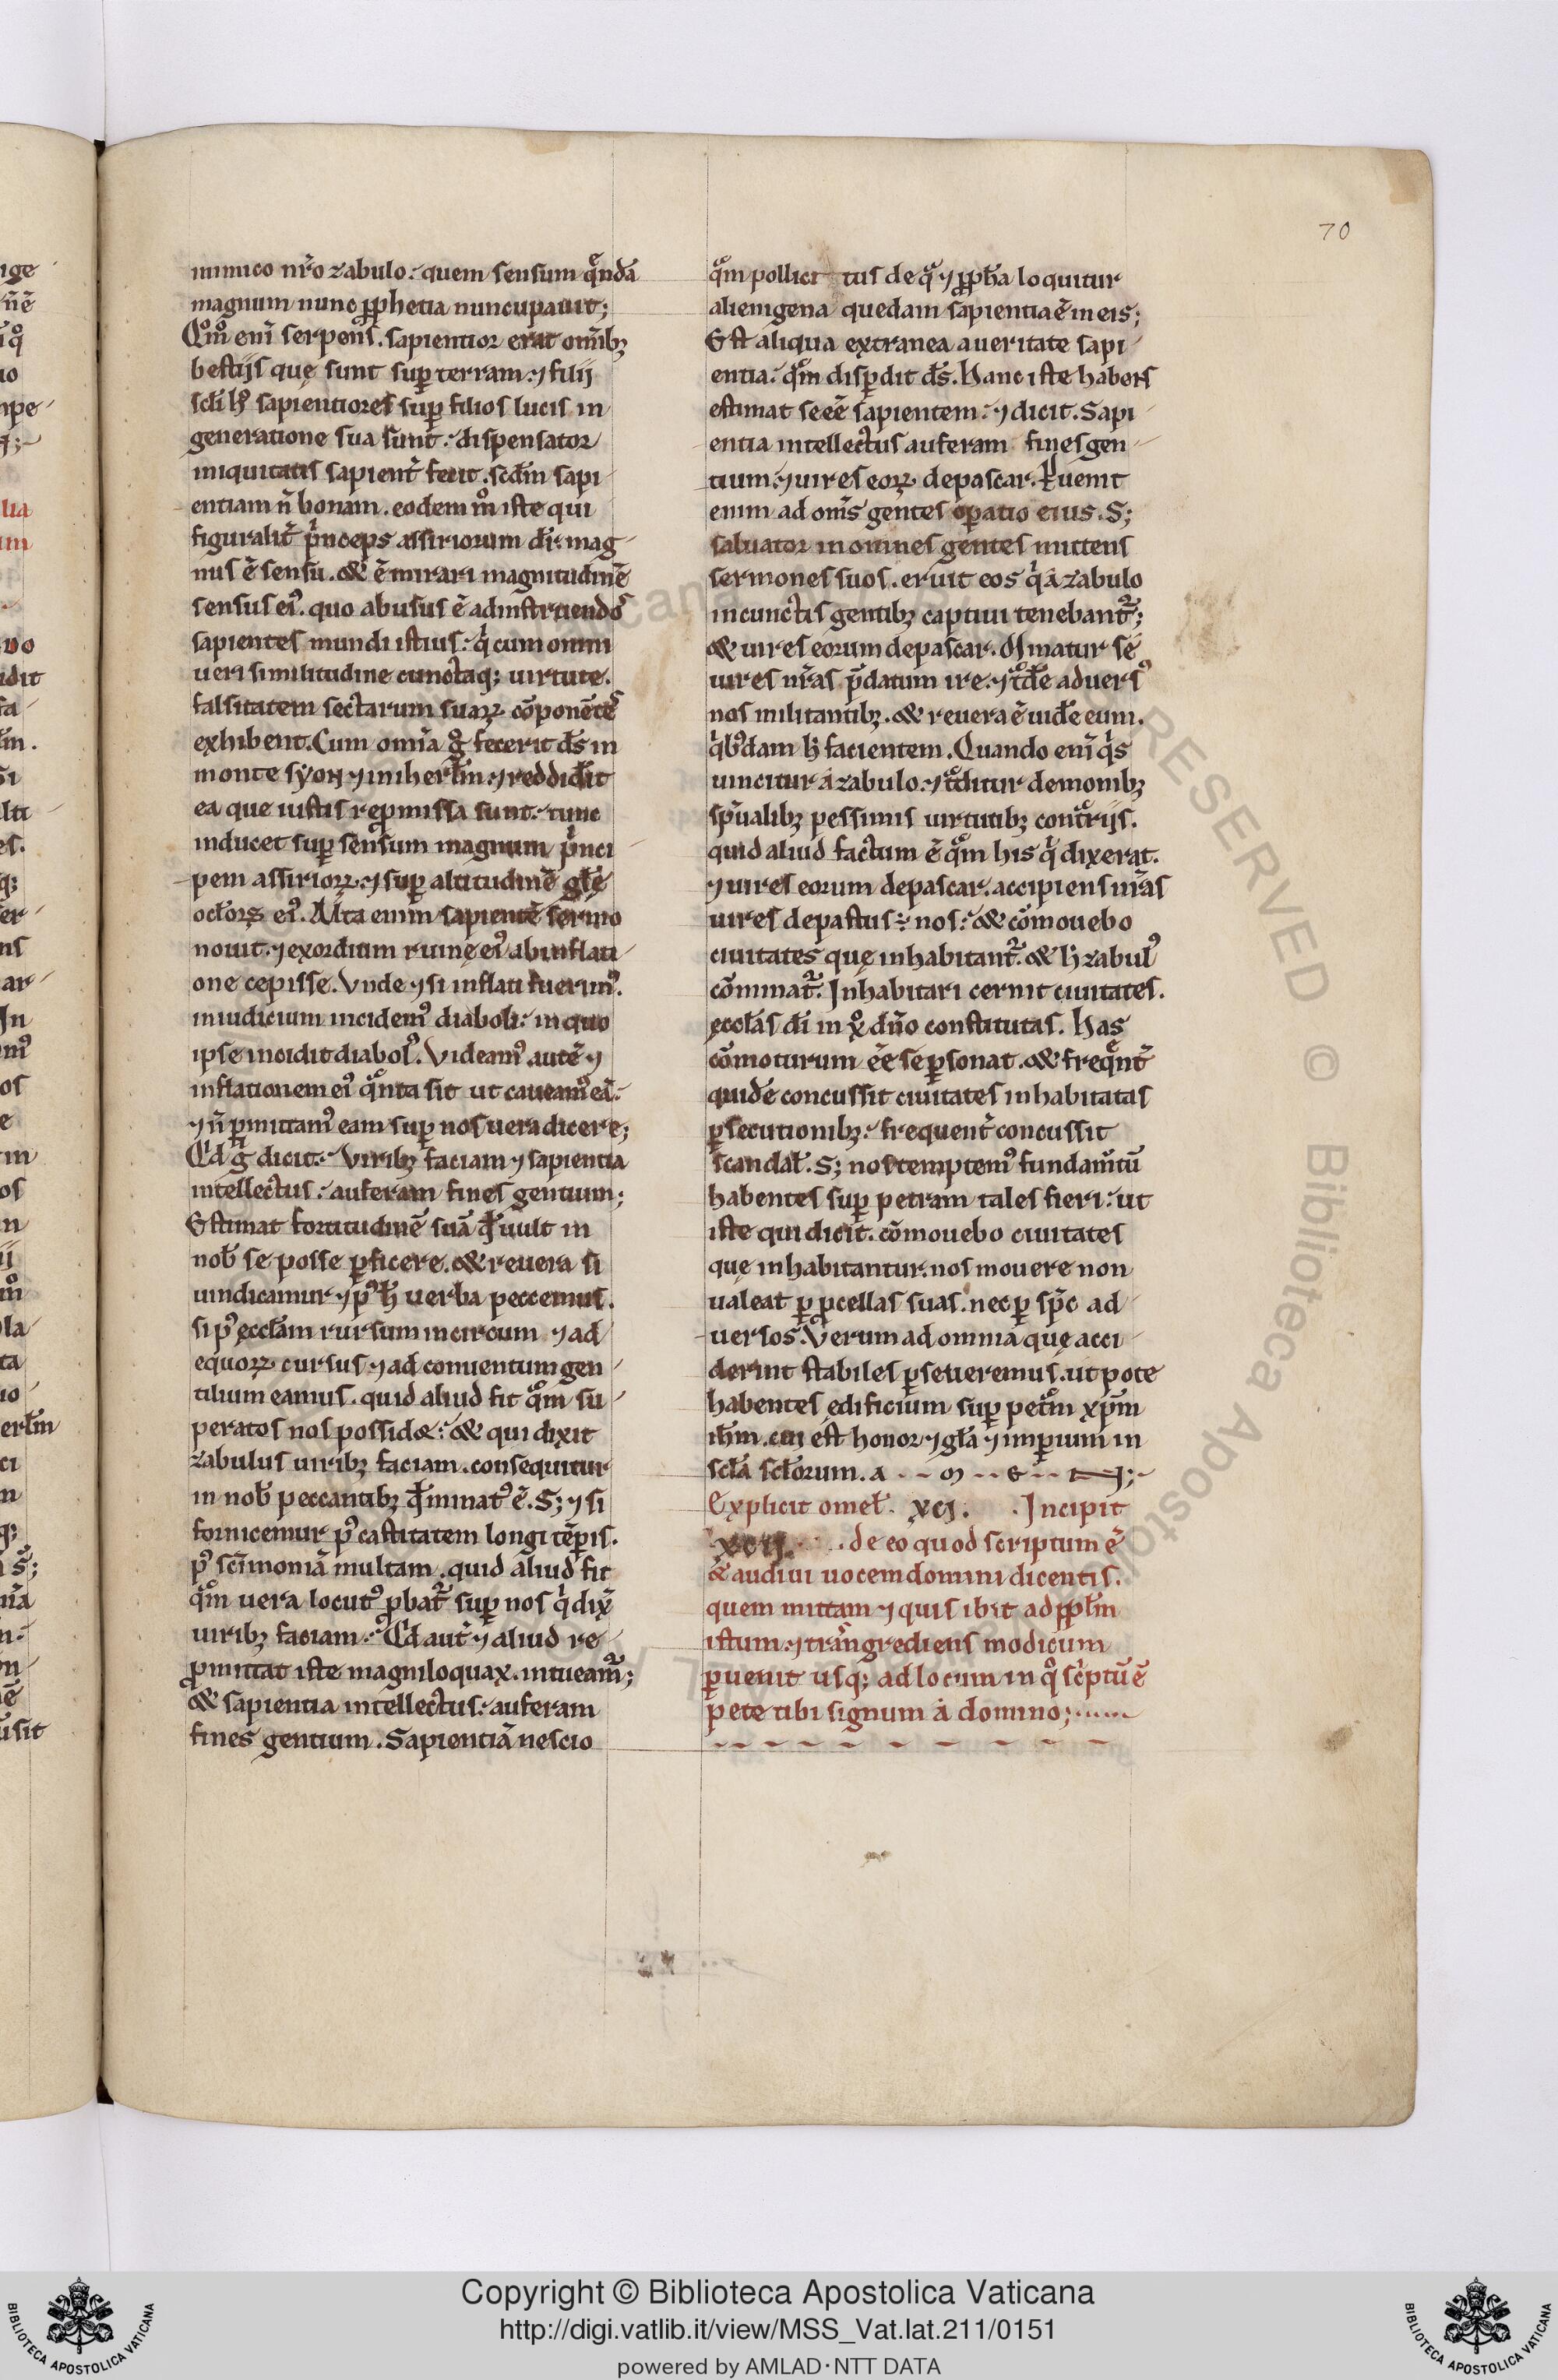 70
inimico nr̄o zabulo: quem sensum quendā
magnum nunc ꝓphetia nuncupauit;
Qm̊o eni̅ serpens. sapientior erat om̄ibꝫ
bestijs quę sunt suꝑ terram: ⁊ filij
sclī hꝰ sapientiores suꝑ filios lucis in
generatione sua sunt: dispensator
iniquitatis sapient̄ fecit. scdm̄ sapi
entiam n̄ bonam. eodem m̊ iste qui
figuralit̄ pͥnceps assiriorum dr̄: mag
nus ē sensu. & ē mirari magnitudinē
sensus eiꝰ. quo abusus ē ad instruendos
sapientes mundi istius: qͥ cum omni
ueri similitudine cunctaqꝫ uirtute.
falsitatem sectarum suaꝝ cōponētes
exhibent. Cum om̄ia g̊ fecerit ds̄ in
monte syon ⁊ in iherl̄m: ⁊ reddid̄it
ea que iustis repmissa sunt: tunc
inducet suꝑ sensum magnum pͥnci
pem assirioꝝ: ⁊ suꝑ altitudinē gl̄ę
ocl̄oꝝ eiꝰ. Alta enim sapientē sermo
nouit: ⁊ exordium ruinę eiꝰ ab inflati
one cepisse. Vnde ⁊ si inflati fuerimꝰ.
in iudicium incidemꝰ diaboli: in quo
ipse incidit diabolꝰ. Videamꝰ autē ⁊
inflationem eiꝰ qͣnta sit ut caueamꝰ eā:
⁊ n̄ ꝑmittamꝰ eam suꝑ nos uera dicere;
Qd g̊ dicit: Viribꝫ faciam ⁊ sapientia
intellectus: auferam fines gentium;
Estimat fortitudinē suā qd̄ uult in
nob̄ se posse ꝑficere. & reuera si
uindicamur ⁊ pꝰ h̄ uerba peccemus.
si pꝰ ęccl̄am rursum in circum ⁊ ad
equoꝝ cursus ⁊ ad conuentum gen
tilium eamus. quid aliud fit qm̄ su
peratos nos possidet: & qui dixit
zabulus uiribꝫ faciam. consequitur
in nob̄ peccantibꝫ qd̄ minatꝰ ē. S; ⁊ si
fornicemur pꝰ castitatem longi tēpris.
pꝰ scīmoniā multam. quid aliud fit
qm̄ uera locutꝰ ꝓbat᷑ suꝑ nos qͥ dix̄
uiribꝫ faciam: Qd aut̄ ⁊ aliud re
ꝓmittat iste magniloquax. intueam᷑;
& sapientia intellectus: auferam
fines gentium. Sapientiā nescio
qͣm pollici tus de qͣ ⁊ ꝓph̄a loquitur
alienigena quedam sapientia ē in eis;
Est aliqua extranea a ueritate sapi
entia: qͣm disꝑdit ds̄. Hanc iste habens
estimat se eē sapientem: ⁊ dicit. Sapi
entia intellectus auferam fines gen
tium: ⁊ uires eoꝝ depascar. Ꝑuenit
enim ad om̄s gentes oꝑatio eius. S;
saluator in omnes gentes mittens
sermones suos. eruit eos qͥ a zabulo
in cunctis gentibꝫ captiui tenebant᷑;
& uires eorum depascar. Minatur se
uires nr̄as p̄datum ire: ⁊ tͣde aduersꝰ
nos militantibꝫ. & reuera ē uid̄e eum.
qͥbꝰdam h̄ facientem. Quando eni̅ qͥs
uincitur a zabulo: ⁊ tͣditur demonibꝫ
spūalibꝫ pessimis uirtutibꝫ contͣrijs.
quid aliud factum ē qͣm his qͥ dixerat.
⁊ uires eorum depascar. accipiens nr̄as
uires depastus ÷ nos: & cōmouebo
ciuitates quę inhabitant᷑. & h̄ zabulꝰ
cōminat᷑. Inhabitari cernit ciuitates.
ęccl̄as dī in xº dn̄o constitutas. Has
cōmoturum eē se ꝑsonat. & freqͥnt̄
quidē concussit ciuitates inhabitatas
ꝑsecutionibꝫ: frequent̄ concussit
scandal̄. S; nos temptemꝰ fundam̄tū
habentes suꝑ petram tales fieri: ut
iste qui dicit. cōmouebo ciuitates
quę inhabitantur. nos mouere non
ualeat ꝑ ꝓcellas suas. nec ꝑ sp̄c ad
uersos. Verum ad omnia quę acci
derint stabiles ꝑseueremus. ut pote
habentes ędificium suꝑ petͣm xp̄m
ih̄m. cui est honor ⁊ gl̄a ⁊ imꝑium in
scl̄a scl̄orum. A - - M - - E - - N;
Explicit omel̄. XCI. Incipit
XCII. de eo quod scriptum ē
& audiui uocem domini dicentis.
quem mittam ⁊ quis ibit ad ppl̄m
istum: ⁊ transgrediens modicum
ꝑuenit usqꝫ ad locum in qͦ scͥptū ē
pete tibi signum a domino;
Copyright © Biblioteca Apostolica Vaticana
http://digi.vatlib.it/view/MSS_Vat.lat.211/0151
powered by AMLAD·NTT DATA